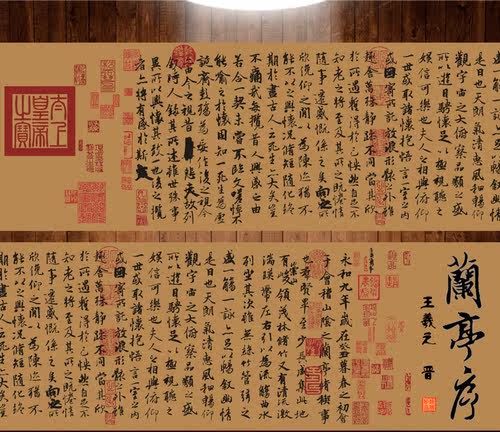 是日也天朗氣清惠風和暢仰
觀宇宙之大俯察品類之盛
所以遊目騁懷足以極視聽之
娛信可樂也夫人之相與俯仰
一世或取諸懷抱悟言一室之內
或因寄所託放浪形骸之外雖
趣舍萬殊靜躁不同當其欣
於所遇暫得於己怏然自足不
知老之將至及其所之既惓情
隨事遷感慨係之矣向之所
欣俛仰之閒以為陳迹猶不
能不以之興懷況脩短隨化終
期於盡古人云死生亦大矣豈
不痛哉每攬昔人興感之由
若合一契未嘗不臨文嗟悼不
能喻之於懷固知一死生為虛
誕齊彭殤為妄作後之視今
亦由今之視昔悲夫故列
敘時人錄其所述雖世殊事
異所以興懷其致一也後之攬
者亦將有感於斯文
太上皇帝之寶
蘭亭序
王羲之 晉
永和九年歲在癸丑暮春之初會
于會稽山陰之蘭亭脩稧事
也群賢畢至少長咸集此地
有崇山峻領茂林脩竹又有清流激
湍暎帶左右引以為流觴曲水
列坐其次雖無絲竹管弦之
盛一觴一詠亦足以暢敘幽情
是日也天朗氣清惠風和暢仰
觀宇宙之大俯察品類之盛
所以遊目騁懷足以極視聽之
娛信可樂也夫人之相與俯仰
一世或取諸懷抱悟言一室之內
或因寄所託放浪形骸之外雖
趣舍萬殊靜躁不同當其欣
於所遇暫得於己怏然自足不
知老之將至及其所之既惓情
隨事遷感慨係之矣向之所
欣俛仰之閒以為陳迹猶不
能不以之興懷況脩短隨化終
期於盡古人云死生亦大矣豈